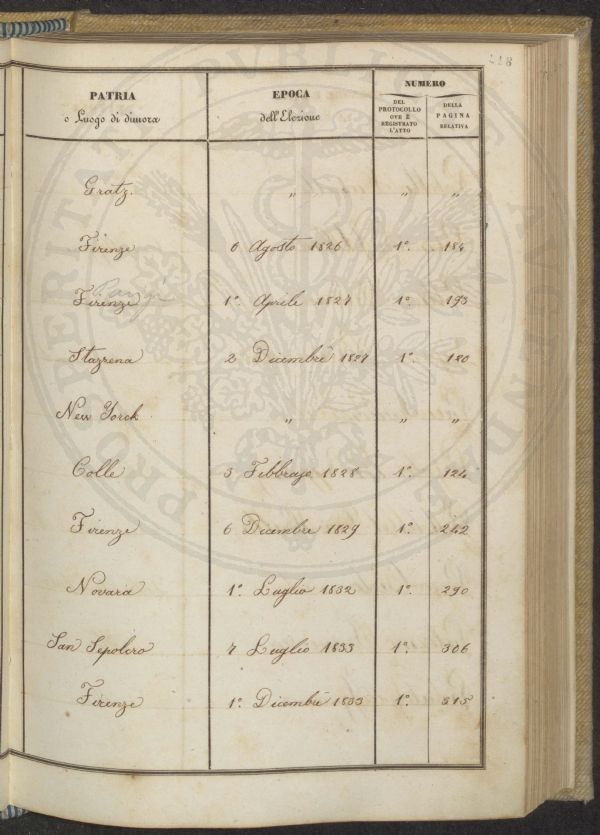 218
PATRIA
o Luogo di dimora
EPOCA
dell'Elezione
NUMERO
DEL
PROTOCOLLO
OVE È
REGISTRATO
L'ATTO
DELLA
PAGINA
RELATIVA
Gratz. " " "
Firenze 6 Agosto 1826 1º. 184
Firenze 1º. Aprile 1827 1º. 193
Stazzena 2 Dicembre 1827 1º. 180
New Yorck " " "
Colle 3 Febbrajo 1828 1º. 124
Firenze 6 Dicembre 1829 1º. 242
Novara 1º. Luglio 1832 1º. 290
San Sepolcro 7 Luglio 1833 1º. 306
Firenze 1º. Dicembre 1833 1º. 315